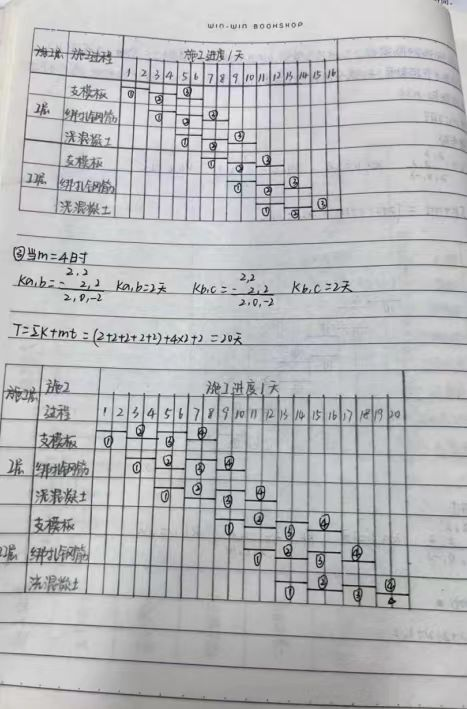 WIN-WIN BOOKSHOP
施工层 施工过程 施工进度/天
1 2 3 4 5 6 7 8 9 10 11 12 13 14 15 16
支模板 ① ② ③
I层 绑扎钢筋 ① ② ③
浇混凝土 ① ② ③
支模板 ① ② ③
II层 绑扎钢筋 ① ② ③
浇混凝土 ① ② ③
③当m=4时
2,2
Ka,b= - 2,2 Ka,b=2天
2,0,-2
2,2
Kb,c= - 2,2 Kb,c=2天
2,0,-2
T=ΣK+mt=(2+2+2+2+2)+4×2+2=20天
施工层 施工过程 施工进度/天
1 2 3 4 5 6 7 8 9 10 11 12 13 14 15 16 17 18 19 20
支模板 ① ② ③ ④
I层 绑扎钢筋 ① ② ③ ④
浇混凝土 ① ② ③ ④
支模板 ① ② ③ ④
II层 绑扎钢筋 ① ② ③ ④
浇混凝土 ① ② ③ ④
4